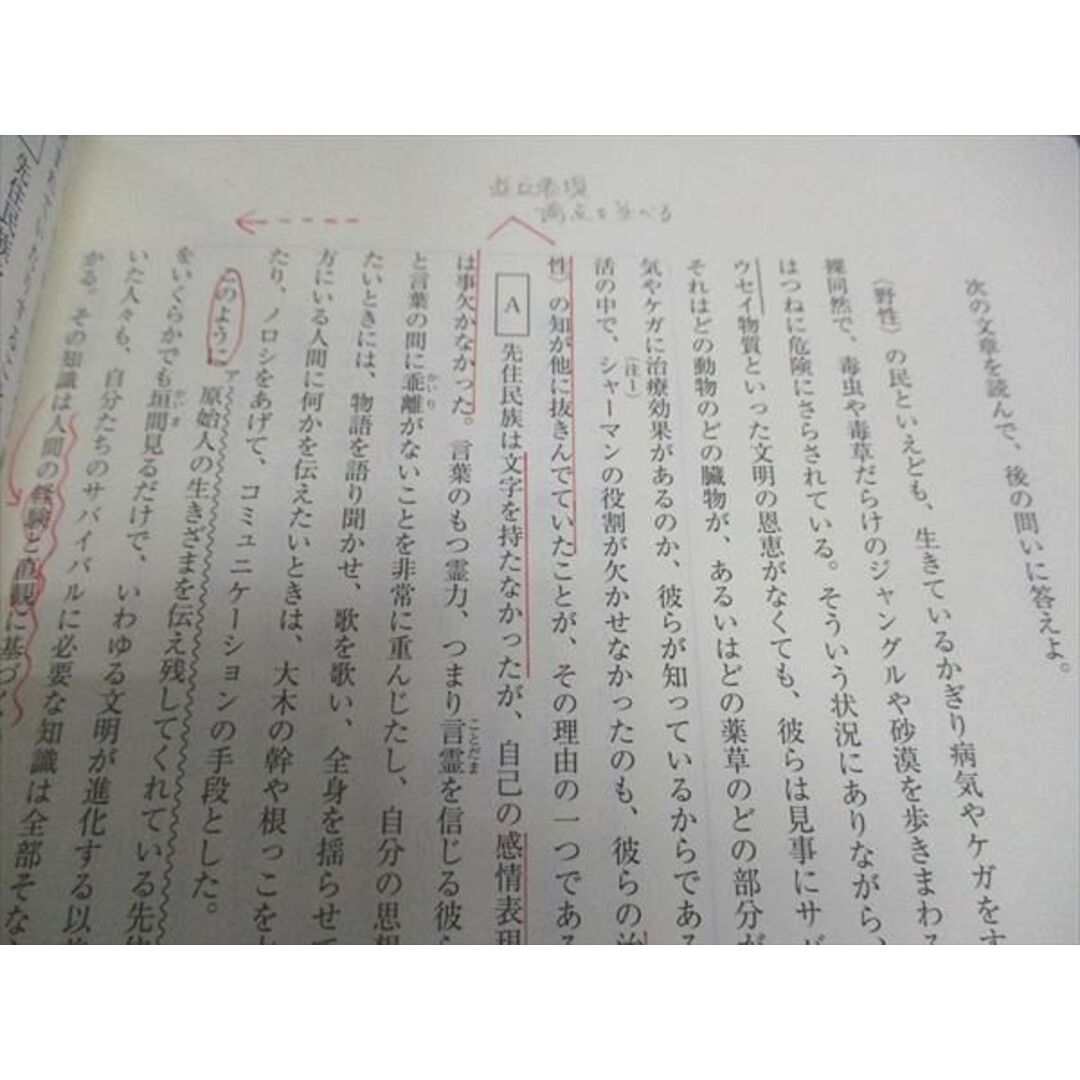 論点を並べる
次の文章を読んで、後の問いに答えよ。
〈野性〉の民といえども、生きているかぎり病気やケガをす
裸同然で、毒虫や毒草だらけのジャングルや砂漠を歩きまわる
はつねに危険にさらされている。そういう状況にありながら、
ウセイ物質といった文明の恩恵がなくても、彼らは見事にサバ
それはどの動物のどの臓物が、あるいはどの薬草のどの部分が
気やケガに治療効果があるのか、彼らが知っているからである
活の中で、シャーマンの役割が欠かせなかったのも、彼らの治
(注1)
性〉の知が他に抜きんでていたことが、その理由の一つである
A 先住民族は文字を持たなかったが、自己の感情表現
は事欠かなかった。言葉のもつ霊力、つまり言霊を信じる彼ら
ことだま
と言葉の間に乖離がないことを非常に重んじたし、自分の思想
かいり
たいときには、物語を語り聞かせ、歌を歌い、全身を揺らせて
方にいる人間に何かを伝えたいときは、大木の幹や根っこをた
たり、ノロシをあげて、コミュニケーションの手段とした。
このように、原始人の生きざまを伝え残してくれている先住
ア
をいくらかでも垣間見るだけで、いわゆる文明が進化する以前
かいま
いた人々も、自分たちのサバイバルに必要な知識は全部そな
かる。その知識は人間の経験と直観に基づく